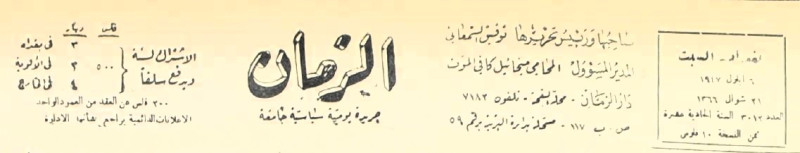 بغداد - السبت
٦ ايلول ١٩٤٧
٢١ شوال ١٣٦٦
العدد ٣٠١٢ السنة الحادية عشرة
ثمن النسخة ١٠ فلوس
صاحبها ورئيس تحريرها توفيق السمعاني
المدير المسؤول المحامي ميخائيل كافي الموت
دار الزمان - محلة الفسحة - تلفون ٧١٨٣
ص . ب ١١٧ - مسجلة بدارة البريد برقم ٥٩
الزمان
جريدة يومية سياسية جامعة
فلس دينار
٣ في بغداد
٥٠٠ ٣ في الألوية
٤ في الخارج
الاشتراك لسنة
ويدفع سلفاً
٣٠٠ فلس عن العقد من العمود الواحد
الاعلانات الدائمية يراجع بشأنها الادارة